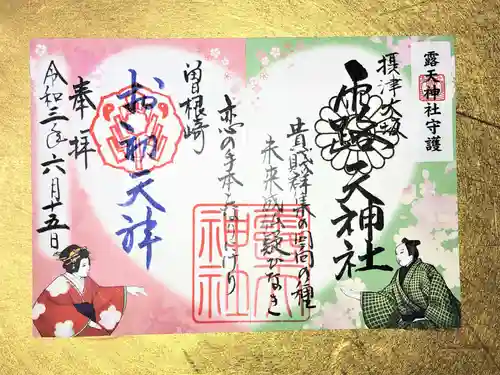 露天神社守護
摂津大坂
露天神社
貴賎群集の回向の種
未来成仏疑ひなき
恋の手本となりにけり
曽根崎
お初天神
奉拝
令和三年六月十五日
露天神社